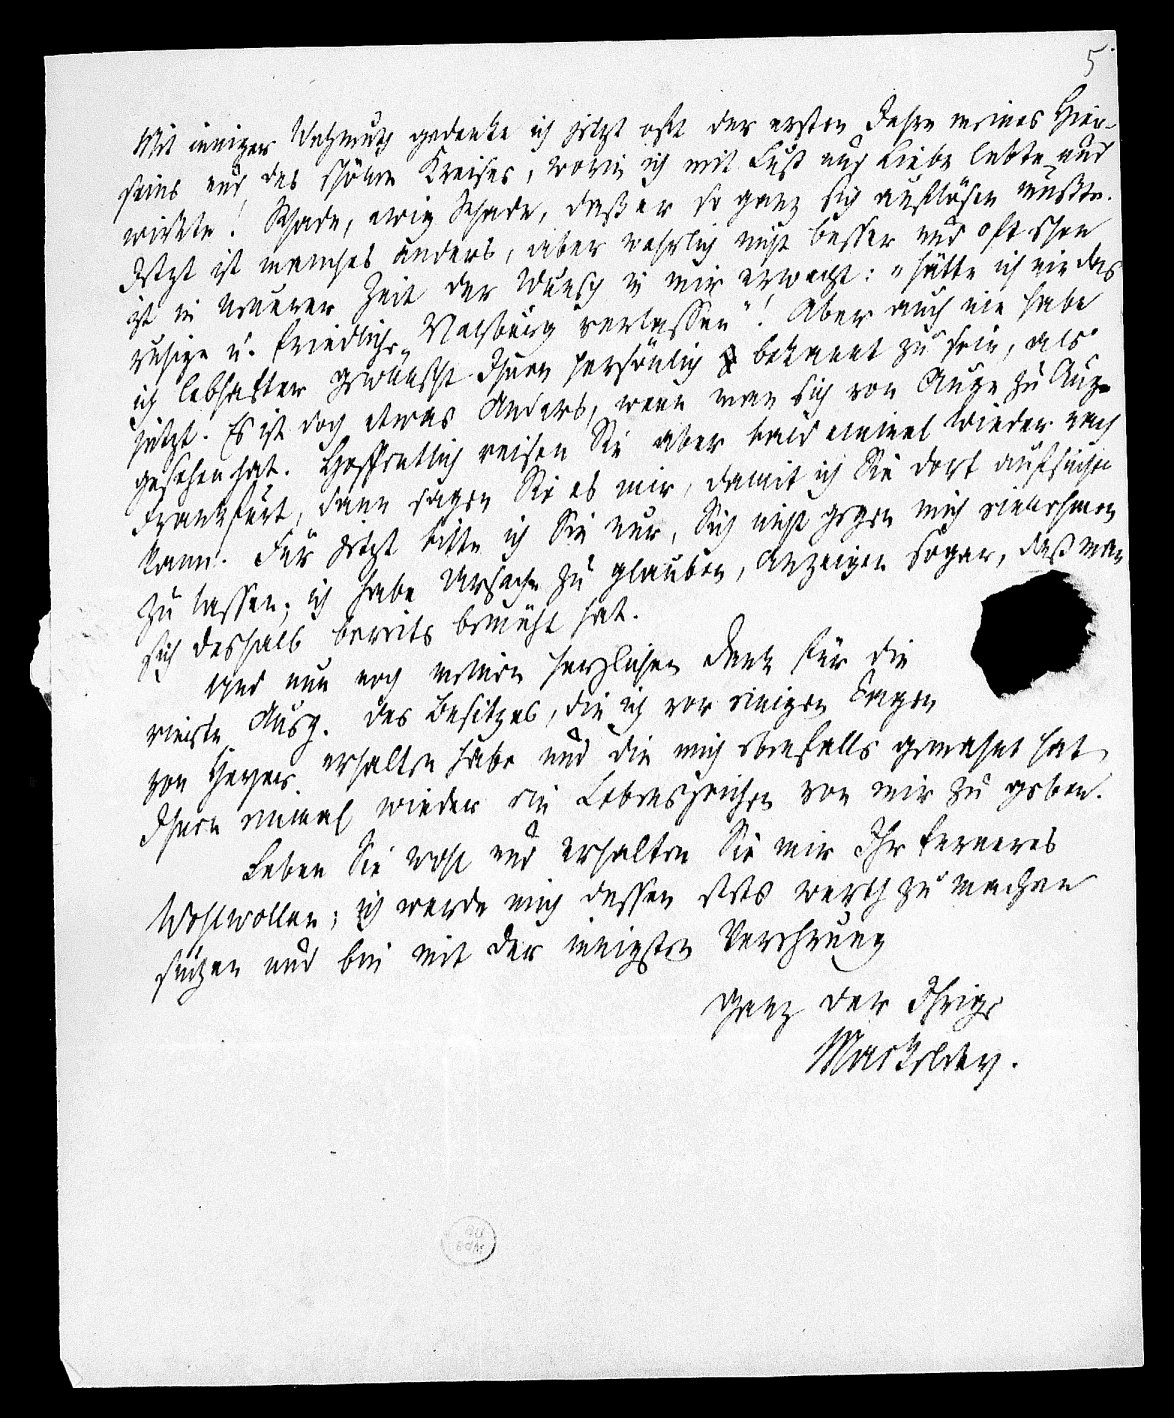 5.
Mit inniger Wehmuth gedenke ich jetzt oft der ersten Jahre meines Hier-
seins und des schönen Kreises, worin ich mit Lust und Liebe lebte und
wirkte! Schade, ewig Schade, daß er so ganz sich auflösen mußte.
Jetzt ist manches anders, aber wahrlich nicht besser und oft schon
ist in neuerer Zeit der Wunsch in mir erwacht: „hätte ich nie das
ruhige u. friedliche Marburg verlassen"! Aber auch nie habe
ich lebhafter gewünscht Ihnen persönlich bekannt zu sein, als
jetzt. Es ist doch etwas Anders, wenn man sich von Auge zu Auge
gesehen hat. Hoffentlich reisen Sie aber bald einmal wieder nach
Frankfurt, dann sagen Sie es mir, damit ich Sie dort aufsuchen
kann. Für jetzt bitte ich Sie nur, Sich nicht gegen mich einnehmen
zu lassen; ich habe Ursache zu glauben, Anzeigen sogar, daß man
sich deshalb bereits bemüht hat.
Und nun noch meinen herzlichen Dank für die
neuste Ausg. des Besitzes, die ich vor einigen Tagen
von Heyer erhalten habe und die mich ebenfalls gemahnt hat
Ihnen einmal wieder ein Lebenszeichen von mir zu geben.
Leben Sie wohl und erhalten Sie mir Ihr ferneres
Wohlwollen; ich werde mich dessen stets werth zu machen
suchen und bin mit der innigsten Verehrung
ganz der Ihrige
Marezoll.